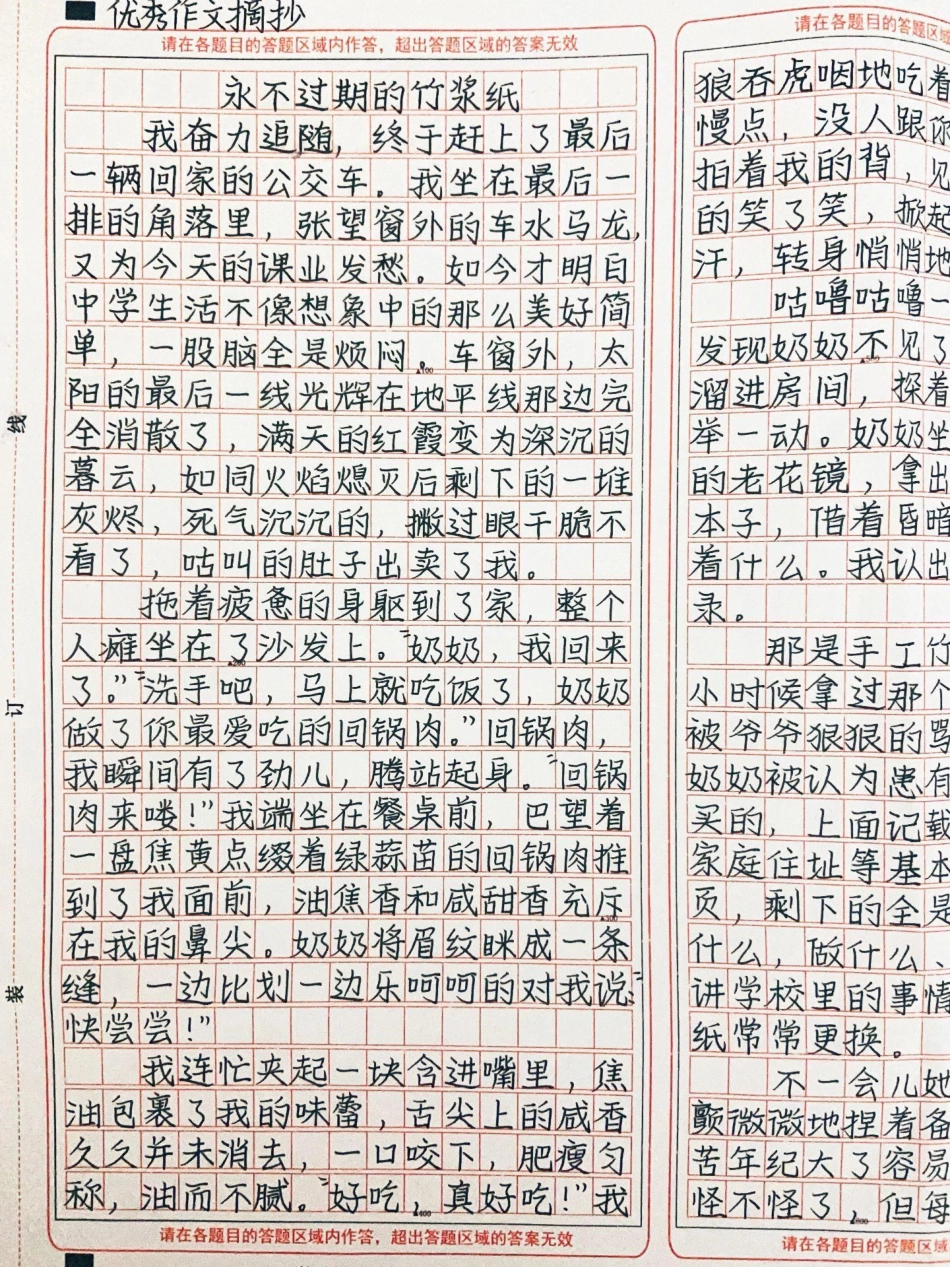 优秀作文摘抄
请在各题目的答题区域内作答，超出答题区域的答案无效
永不过期的竹浆纸
我奋力追随，终于赶上了最后
一辆回家的公交车。我坐在最后一
排的角落里，张望窗外的车水马龙，
又为今天的课业发愁。如今才明白
中学生活不像想象中的那么美好简
单，一股脑全是烦闷。车窗外，太
▲100
阳的最后一线光辉在地平线那边完
全消散了，满天的红霞变为深沉的
暮云，如同火焰熄灭后剩下的一堆
灰烬，死气沉沉的，撇过眼干脆不
看了，咕叫的肚子出卖了我。
拖着疲惫的身躯到了家，整个
人瘫坐在了沙发上。“奶奶，我回来
▲200
了。”“洗手吧，马上就吃饭了，奶奶
做了你最爱吃的回锅肉。”回锅肉，
我瞬间有了劲儿，腾站起身。“回锅
肉来喽！”我端坐在餐桌前，巴望着
一盘焦黄点缀着绿蒜苗的回锅肉推
到了我面前，油焦香和咸甜香充斥
▲300
在我的鼻尖。奶奶将眉纹眯成一条
缝，一边比划一边乐呵呵的对我说：“
快尝尝！”
我连忙夹起一块含进嘴里，焦
油包裹了我的味蕾，舌尖上的咸香
久久并未消去，一口咬下，肥瘦匀
称，油而不腻。“好吃，真好吃！”我
▲400
请在各题目的答题区域内作答，超出答题区域的答案无效
线
订
装
请在各题目的答题区域
狼吞虎咽地吃着
慢点，没人跟你
拍着我的背，见
的笑了笑，掀起
汗，转身悄悄地
咕噜咕噜一
发现奶奶不见了
溜进房间，探着
举一动。奶奶坐
的老花镜，拿出
本子，借着昏暗
着什么。我认出
录。
那是手工竹
小时候拿过那个
被爷爷狠狠的骂
奶奶被认为患有
买的，上面记载
家庭住址等基本
页，剩下的全是
什么，做什么、
讲学校里的事情
纸常常更换。
不一会儿她
颤微微地捏着备
苦年纪大了容易
怪不怪了，但每
请在各题目的答题区域